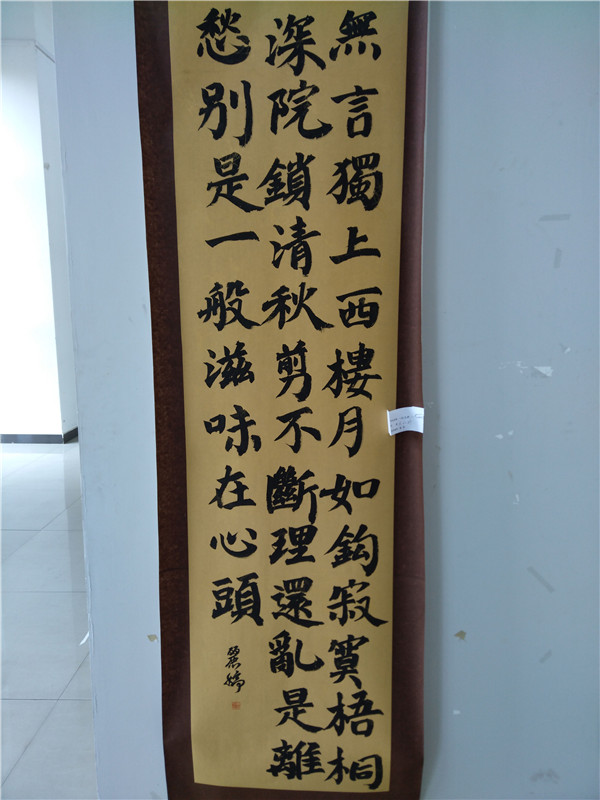 無言獨上西樓月如鈎寂寞梧桐
深院鎖清秋剪不斷理還亂是離
愁别是一般滋味在心頭